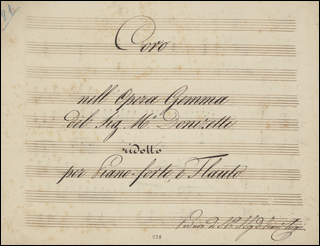 Coro
nell' Opera Gemma
del Sig. Mº Donizetti
ridotto
per Piano-forte, e Flauto